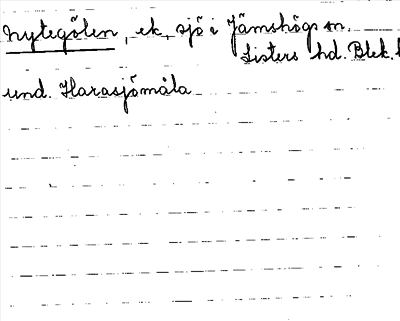 Nytegölen, ek, sjö i Jämshögs sn.
Listers hd. Blek. l
und. Harasjömåla